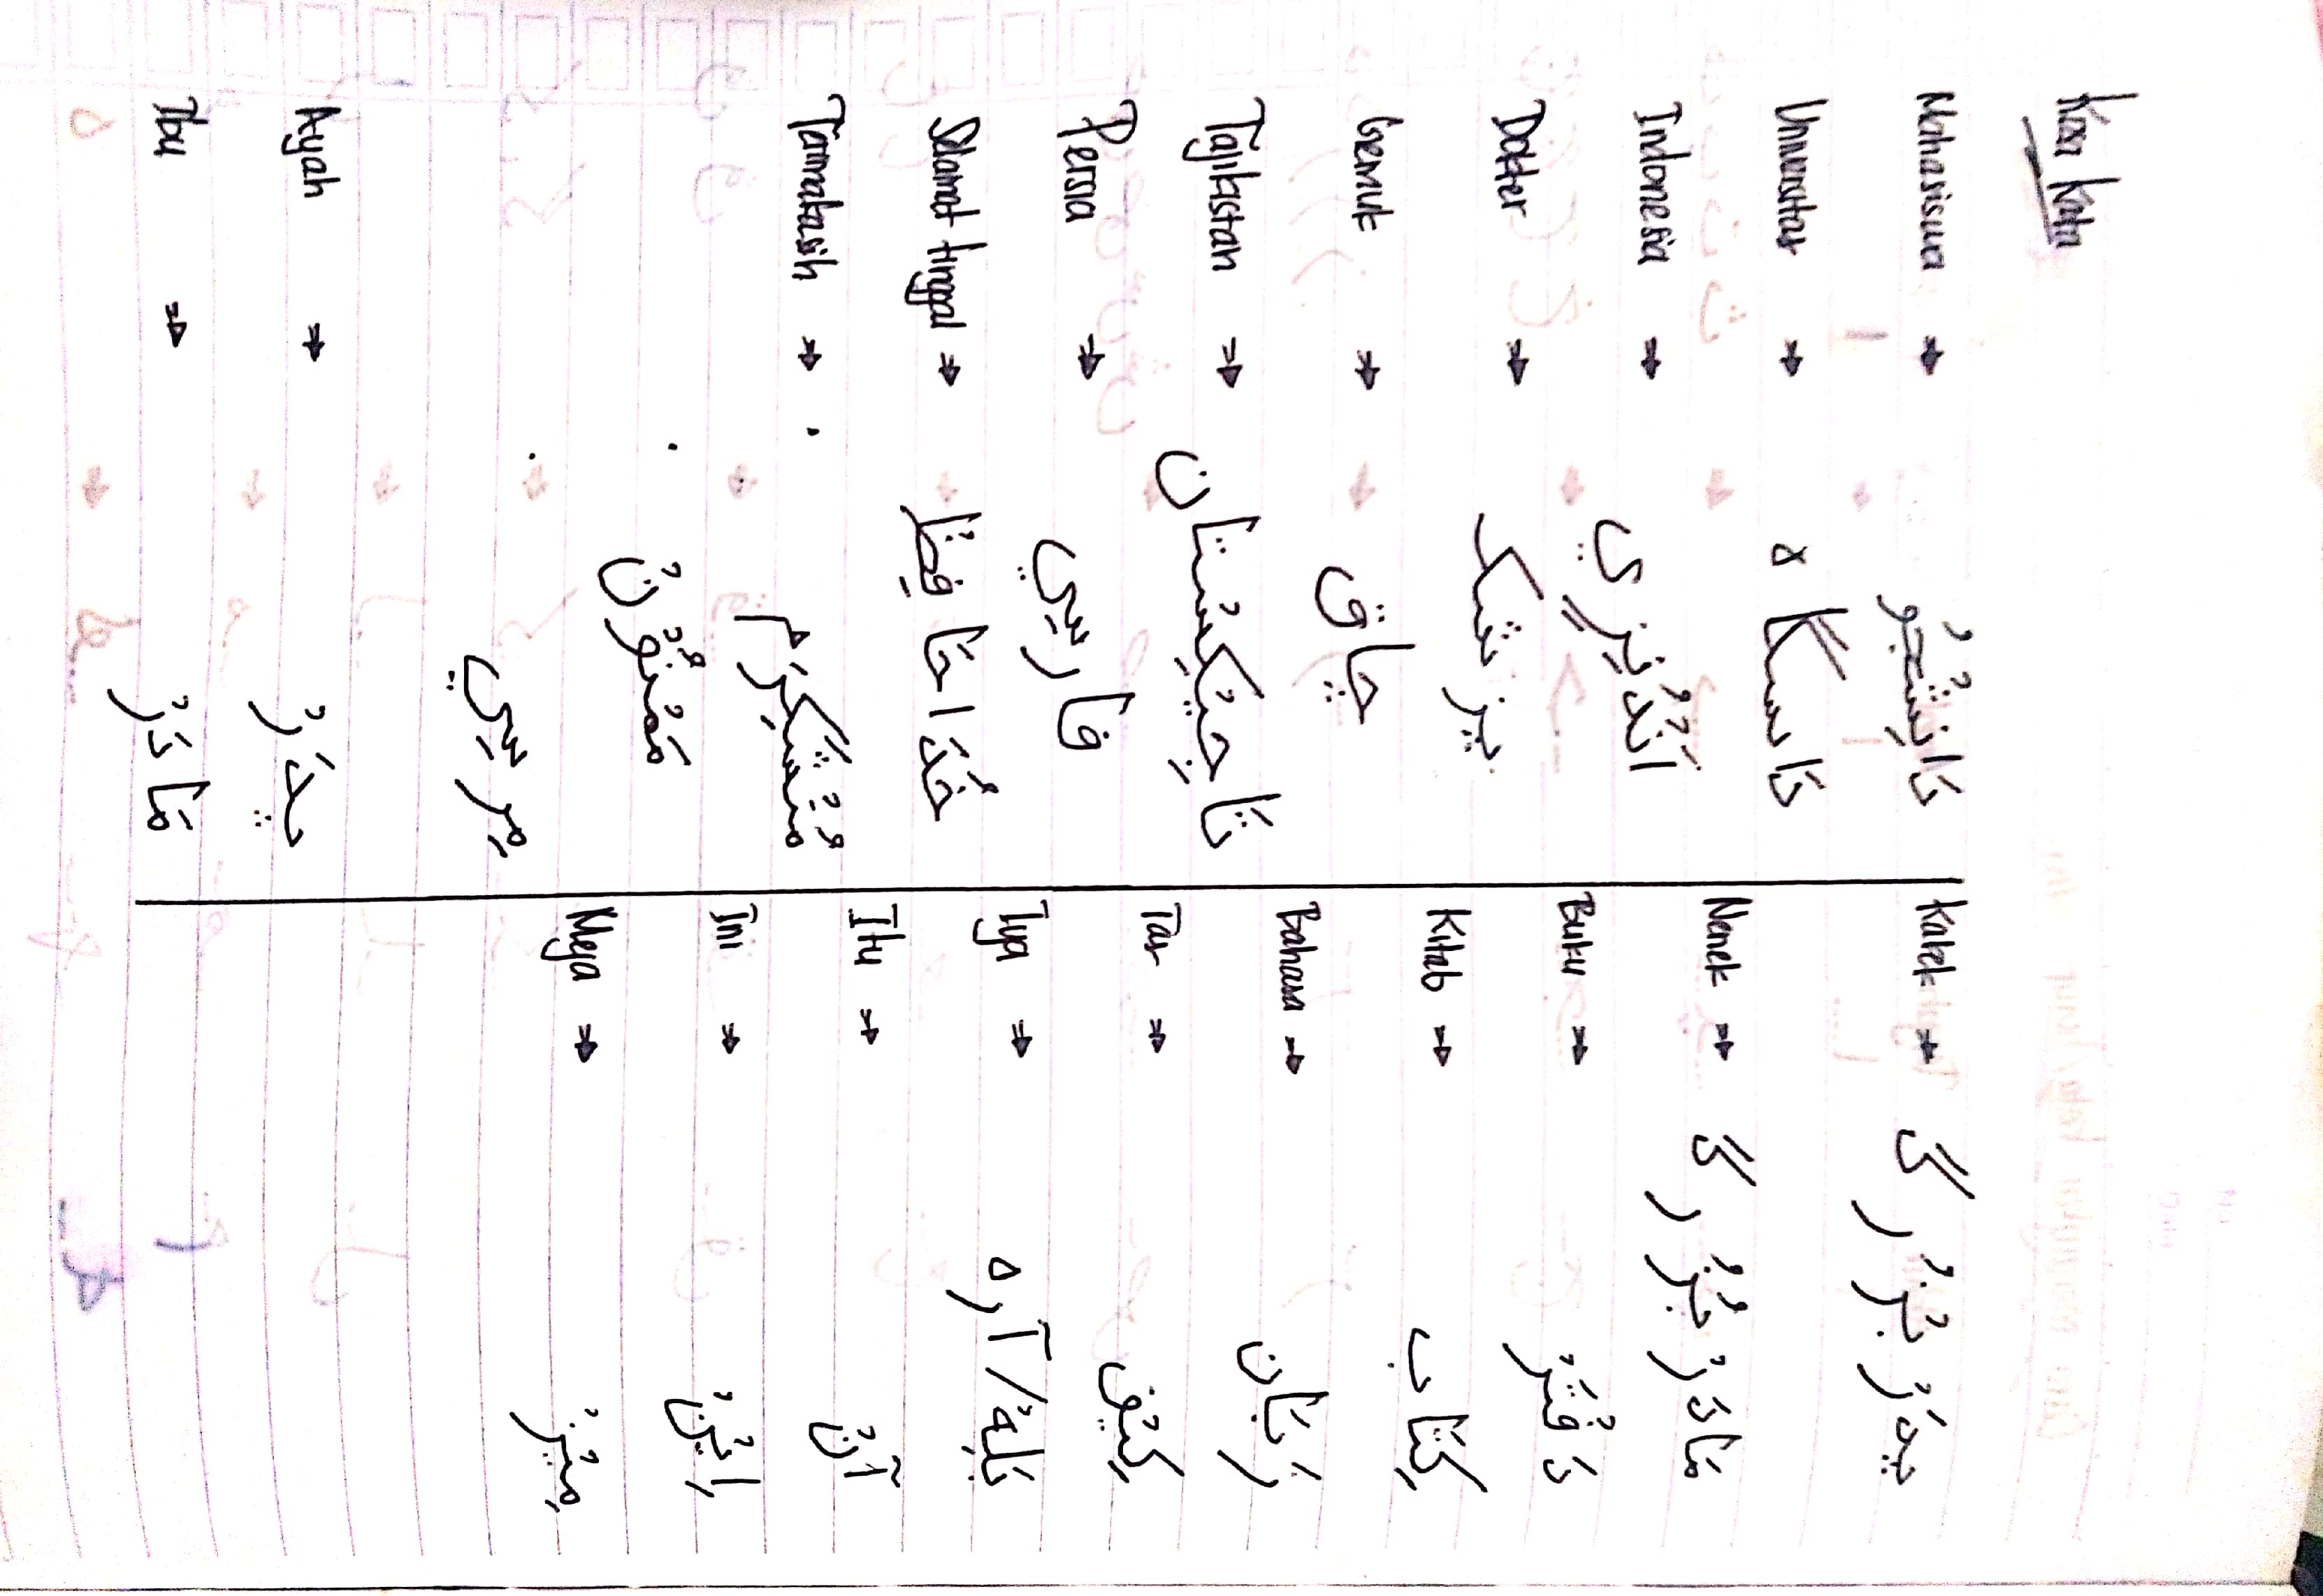 Kosa Kata
Mahasiswa ⇒ دَانِشْجُوْ
Universitas ⇒ دَاسگاه
Indonesia ⇒ اَنْدُنِزِي
Dokter ⇒ پزشک
Gemuk ⇒ چاق
Tajikistan ⇒ تَاجِيْكِسْتَان
Persia ⇒ فَارسِي
Selamat tinggal ⇒ خُدَا حَافِظْ
Terimakasih ⇒ • مُتْشَكِرَم
• مَمْنُوْنْ
• مِرسِي
Ayah ⇒ پِدَرْ
Ibu ⇒ مَادَرْ
Kakek ⇒ پِدَرْ بُزُرگ
Nenek ⇒ مَادَرْ بُزُرگ
Buku ⇒ دَفْتَرْ
Kitab ⇒ كِتَاب
Bahasa ⇒ زَبَان
Tas ⇒ كِيْف
Iya ⇒ بَلِهْ / آره
Itu ⇒ آنْ
Ini ⇒ اِيْنْ
Meja ⇒ مِيْزْ